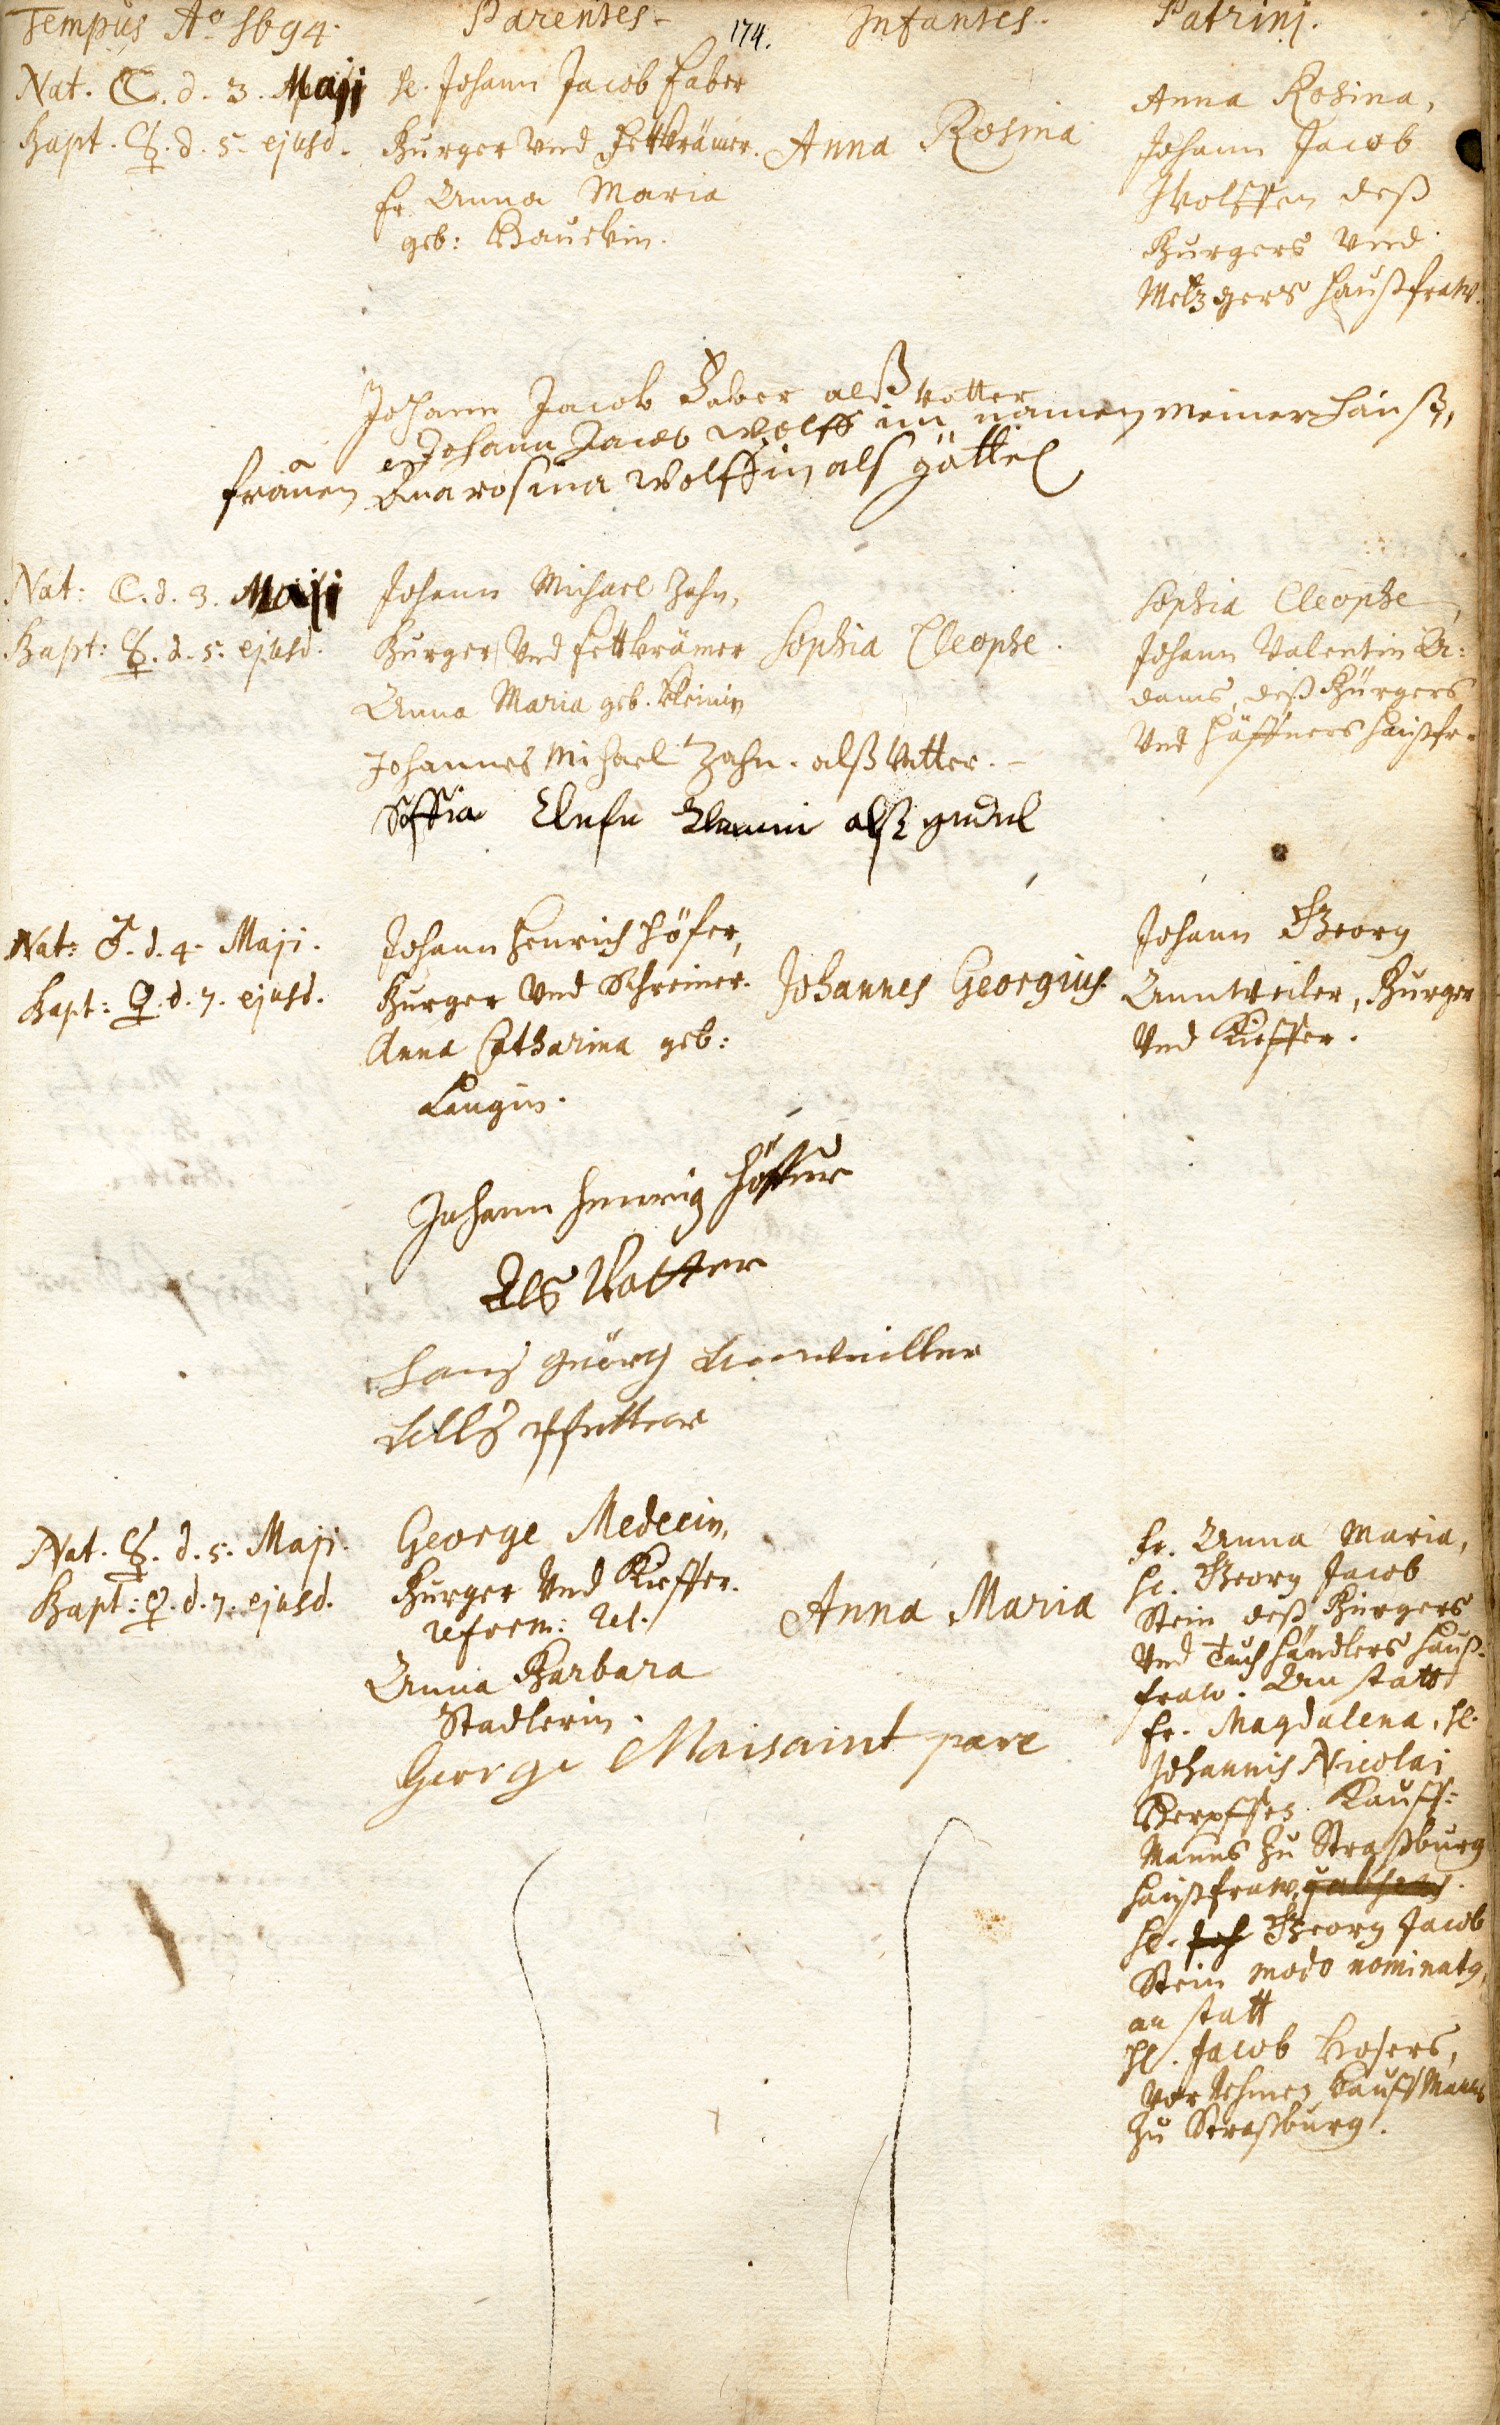 Tempus Aō 1694. Parentes. 174. Infantes. Patrinj.
Nat. ☾. d. 3. Maji
Bapt. ☿. d. 5. ejusd.
H. Johann Jacob Faber
Burger vnd Fettkrämer.
Fr. Anna Maria
geb:
Anna Rosina
Anna Rosina,
Johann Jacob
Wolffen deß
Burgers vnd
Metzgers haußfraw.
Johann Jacob Faber alß Vatter
Johann Jacob Wolff im namen meiner hauß,
frauen Anarosina Wolffin als göttel
Nat: ☾. d. 3. Maji
Bapt: ☿. d. 5. ejusd.
Johann Michael Zahn,
Burger vnd Fettkrämer
Anna Maria geb. Kleinin
Sophia Cleophe.
Sophia Cleophe,
Johann Valentin A:
dams, deß Burgers
vnd Haffners haußfr.
Johannes Michael Zahn. alß Vatter.
Soffia alß
Nat: ♂. d. 4. Maji.
Bapt: ♀. d. 7. ejusd.
Johann Henrich Höfer,
Burger vnd Schreiner.
Anna Catharina geb:
Langin.
Johannes Georgius.
Johann Georg
Annweiler, Burger
vnd Kieffer.
Johann Henrig Höffer
Als Vatter
Hans Geörg Annweiller
Alls Pfetter
Nat. ☿. d. 5. Maji.
Bapt: ♀. d. 7. ejusd.
George Medecin,
Burger vnd Kieffer.
reform: Rel.
Anna Barbara
Stadlerin.
Anna Maria
George Maisaint pere
Fr. Anna Maria,
H. Georg Jacob
Stein deß Burgers
vnd Tuchhändlers hauß-
fraw. An statt
Fr. Magdalena, H.
Johannis Nicolai
Kauff-
manns zu Straßburg
haußfraw,
H. Georg Jacob
Stein modo nominatq,
an statt
H. Jacob
Vornehmen Kauffmanns
zu Straßburg.